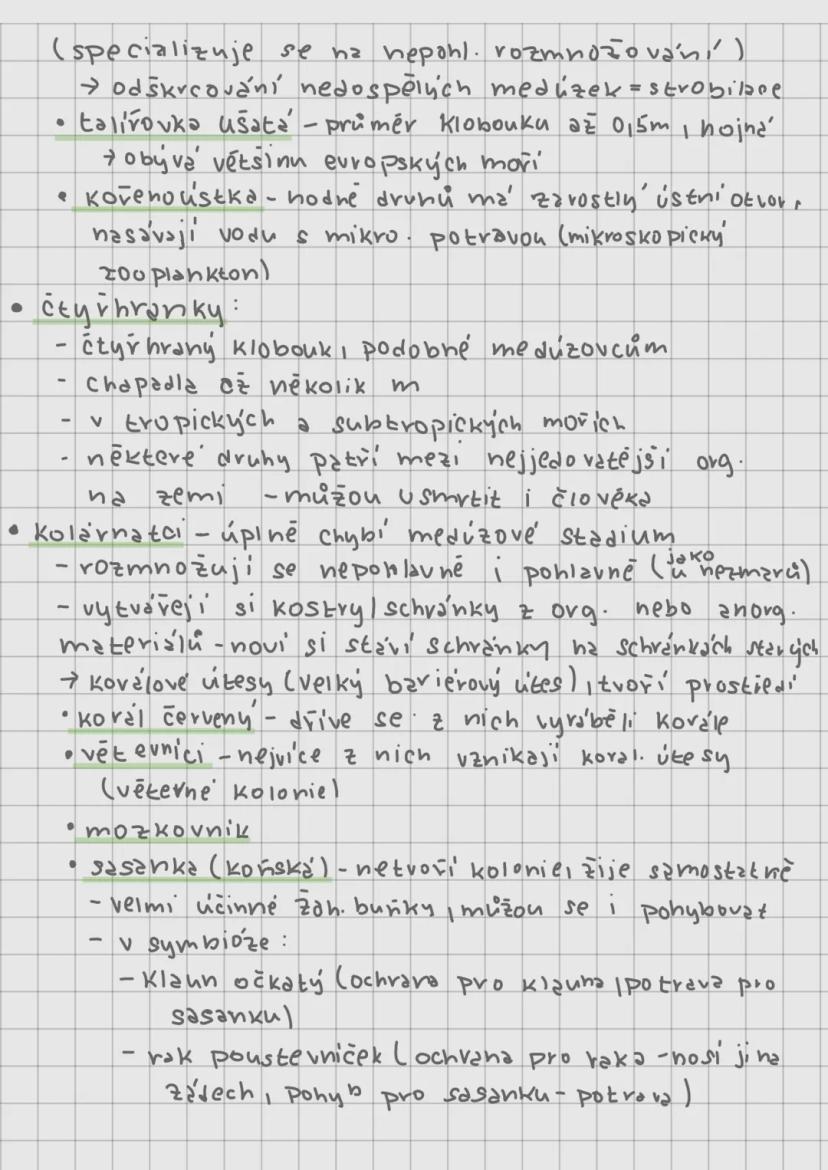 (specializuje se na nepohl. rozmnožování)
→ odškrcování nedospělých medúzek = strobilace
• talířovka ušatá - průměr klobouku až 0,5m, hojná
→ obývá většinu evropských moří
• kořenoústka - hodně druhů má zarostlý ústní otvor,
nasávají vodu s mikro. potravou (mikroskopický
zooplankton)
• čtyřhranky:
- čtyřhraný klobouk, podobné medúzovcům
- chapadla až několik m
- v tropických a subtropických mořích
- některé druhy patří mezi nejjedovatější org.
na zemi - můžou usmrtit i člověka
• kolárnatci - úplně chybí medúzové stadium
- rozmnožují se nepohlavně i pohlavně (jako u nezmarů)
- vytvářejí si kostry/schránky z org. nebo anorg.
materiálů - noví si staví schránky na schránkách starých
→ korálové útesy (velký bariérový útes), tvoří prostředí
• korál červený - dříve se z nich vyráběli korále
• větevníci - nejvíce z nich vznikají korál. útesy
(větevné kolonie)
• mozkovník
• sasanka (koňská) - netvoří kolonie, žije samostatně
- velmi účinné žah. buňky, můžou se i pohybovat
- v symbióze:
- klaun očkatý (ochrana pro klauna, potrava pro
sasanku)
- rak poustevníček (ochrana pro raka - nosí ji na
zádech, pohyb pro sasanku - potrava)